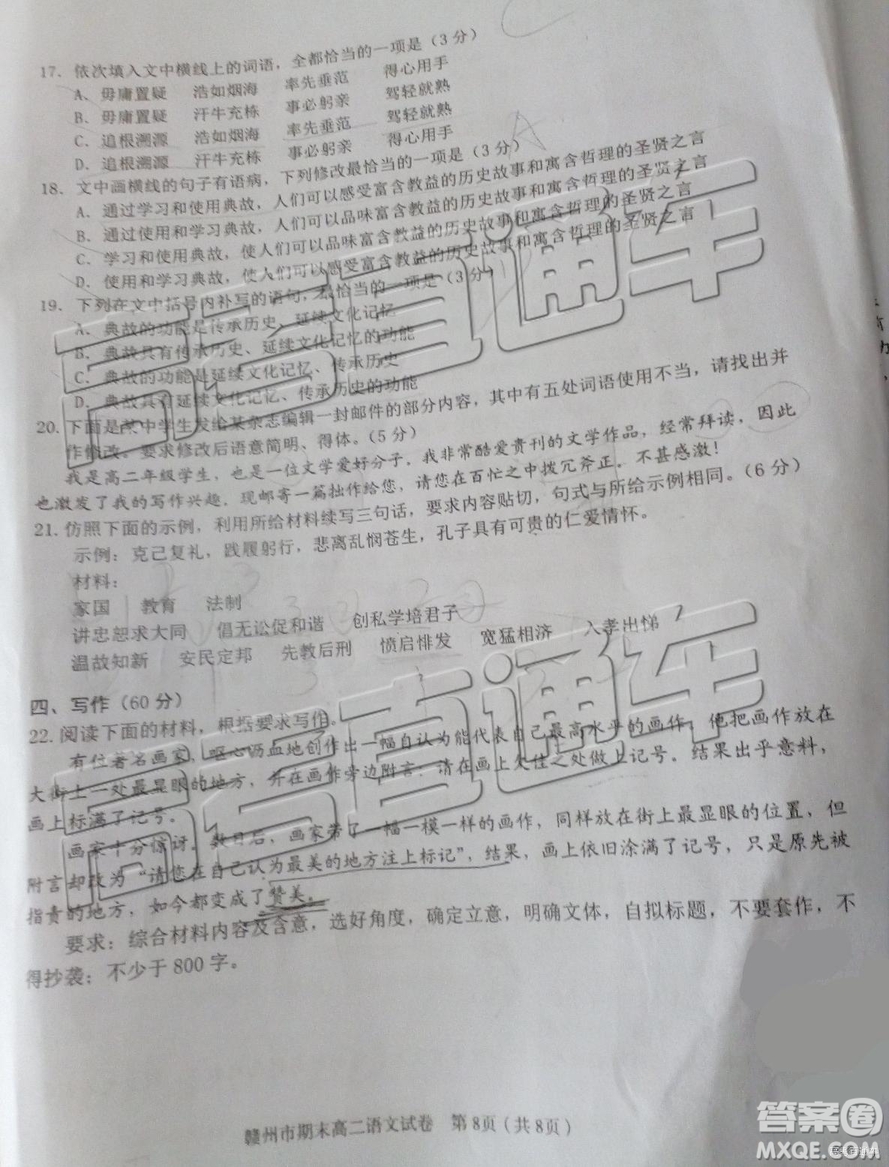 17. 依次填入文中横线上的词语，全都恰当的一项是（3分）
A、毋庸置疑 浩如烟海 率先垂范 得心用手
B、毋庸置疑 汗牛充栋 事必躬亲 驾轻就熟
C、追根溯源 浩如烟海 率先垂范 驾轻就熟
D、追根溯源 汗牛充栋 事必躬亲 得心用手
18. 文中画横线的句子有语病，下列修改最恰当的一项是（3分）
A. 通过学习和使用典故，人们可以感受富含教益的历史故事和寓含哲理的圣贤之言
B. 通过使用和学习典故，人们可以品味富含教益的历史故事和寓含哲理的圣贤之言
C. 学习和使用典故，使人们可以品味富含教益的历史故事和寓含哲理的圣贤之言
D. 使用和学习典故，使人们可以感受富含教益的历史故事和寓含哲理的圣贤之言
19. 下列在文中括号内补写的语句，最恰当的一项是（3分）
A、典故的功能是传承历史、延续文化记忆
B、典故具有传承历史、延续文化记忆的功能
C、典故的功能是延续文化记忆、传承历史
D、典故具有延续文化记忆、传承历史的功能
20. 下面是某中学生发给某杂志编辑一封邮件的部分内容，其中有五处词语使用不当，请找出并
作修改，要求修改后语意简明、得体。（5分）
我是高二年级学生，也是一位文学爱好分子，我非常酷爱贵刊的文学作品，经常拜读，因此
也激发了我的写作兴趣。现邮寄一篇拙作给您，请您在百忙之中拨冗斧正。不甚感激！
21. 仿照下面的示例，利用所给材料续写三句话，要求内容贴切，句式与所给示例相同。（6分）
示例：克己复礼，践履躬行，悲离乱悯苍生，孔子具有可贵的仁爱情怀。
材料：
家国 教育 法制
讲忠恕求大同 倡无讼促和谐 创私学培君子
温故知新 安民定邦 先教后刑 愤启悱发 宽猛相济 入孝出悌
四、写作（60分）
22. 阅读下面的材料，根据要求写作。
有位著名画家，呕心沥血地创作出一幅自认为能代表自己最高水平的画作，他把画作放在
大街上一处最显眼的地方，并在画作旁边附言：请在画上欠佳之处做上记号。结果出乎意料，
画上标满了记号。
画家十分惊讶。数日后，画家带了一幅一模一样的画作，同样放在街上最显眼的位置，但
附言却改为“请您在自己认为最美的地方注上标记”，结果，画上依旧涂满了记号，只是原先被
指责的地方，如今都变成了赞美。
要求：综合材料内容及含意，选好角度，确定立意，明确文体，自拟标题，不要套作，不
得抄袭；不少于800字。
赣州市期末高二语文试卷 第8页（共8页）
高考直通车
高考直通车
答案圈
MXQE.COM